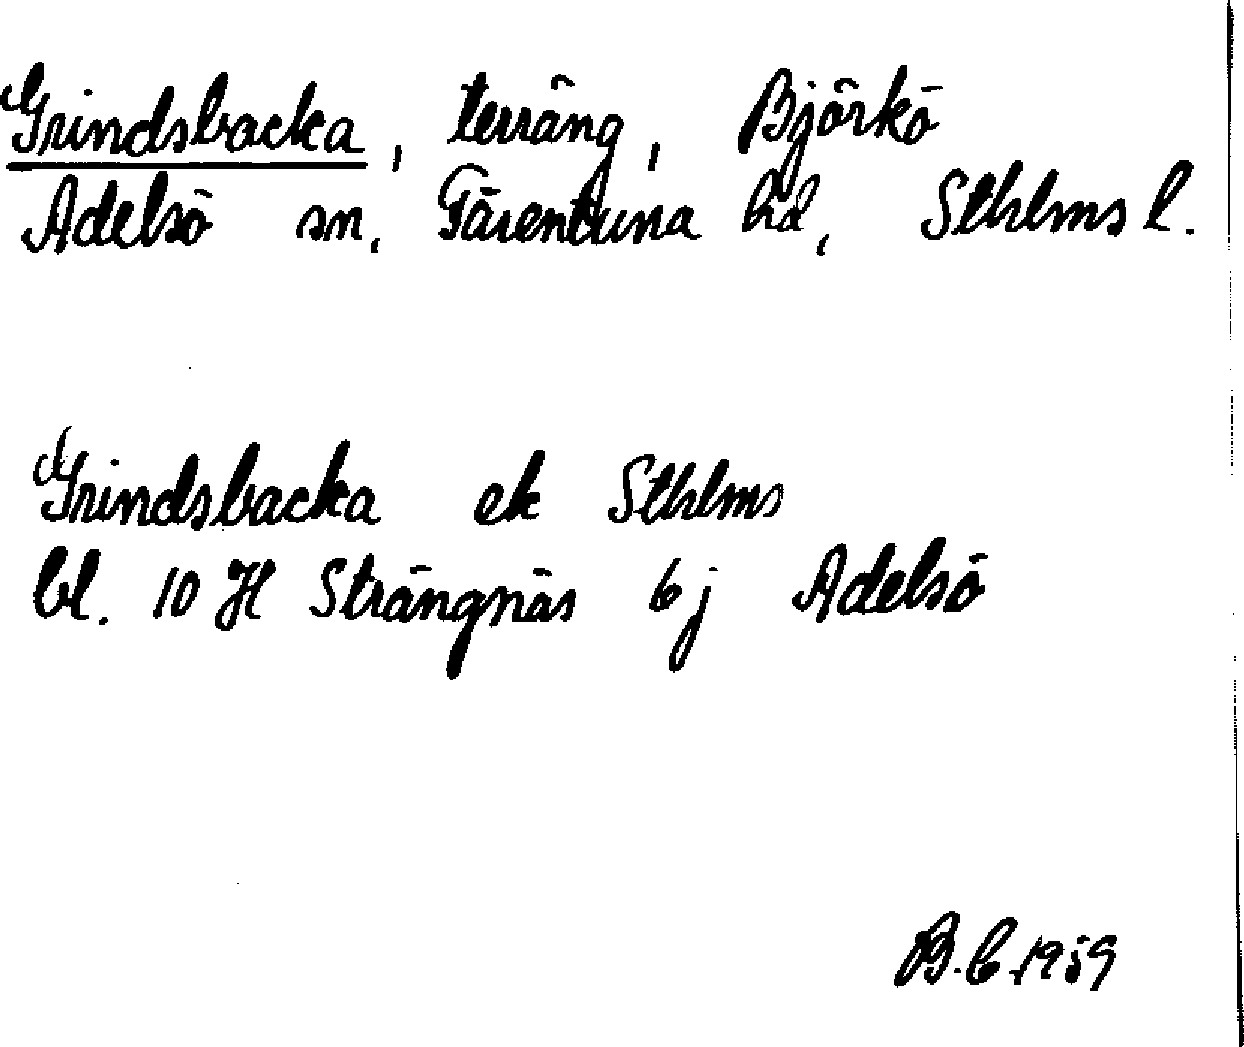 Grindsbacka, terräng, Björkö
Adelsö sn, Färentuna hd, Sthlms l.
Grindsbacka ek Sthlms
bl. 10 H Strängnäs 6j Adelsö
B.C. 1959